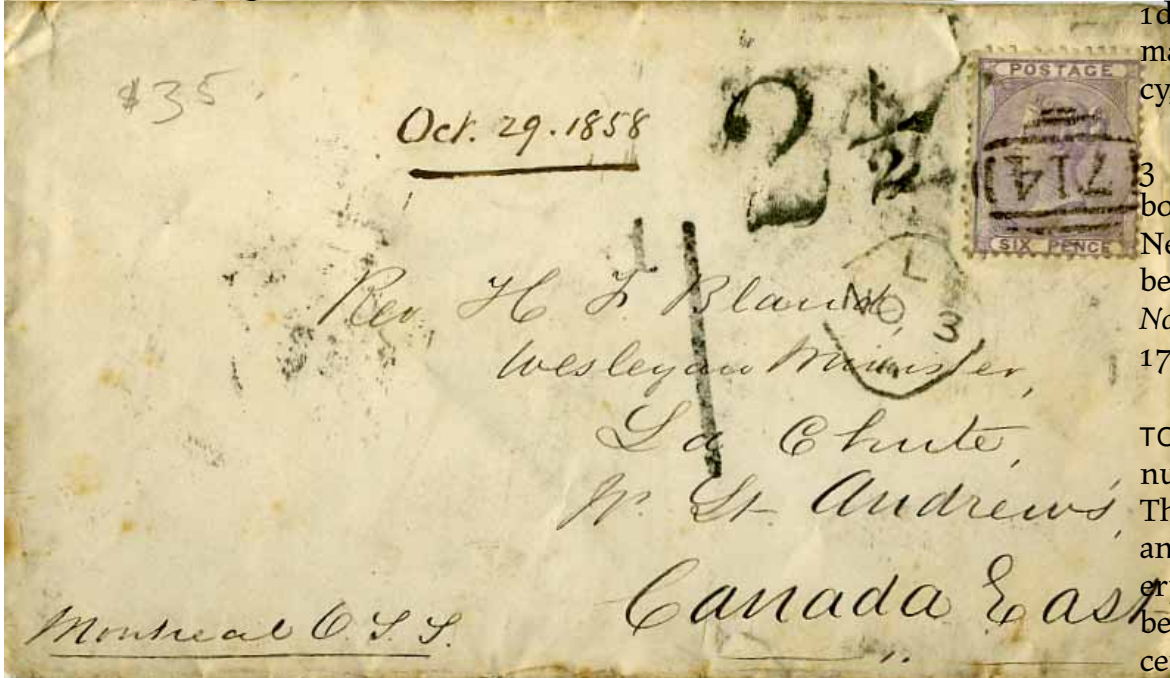 $35.
Oct. 29. 1858
2 1/2
POSTAGE
714
SIX PENCE
L
NO 3
1
Rev. H F. Bland,
Wesleyan Minister,
La Chute,
Nr. St. Andrews,
Canada East
Montreal O S. S.
1d
ma
cy
3
bo
Ne
be
No
17
TO
nu
Th
an
er
be
ce